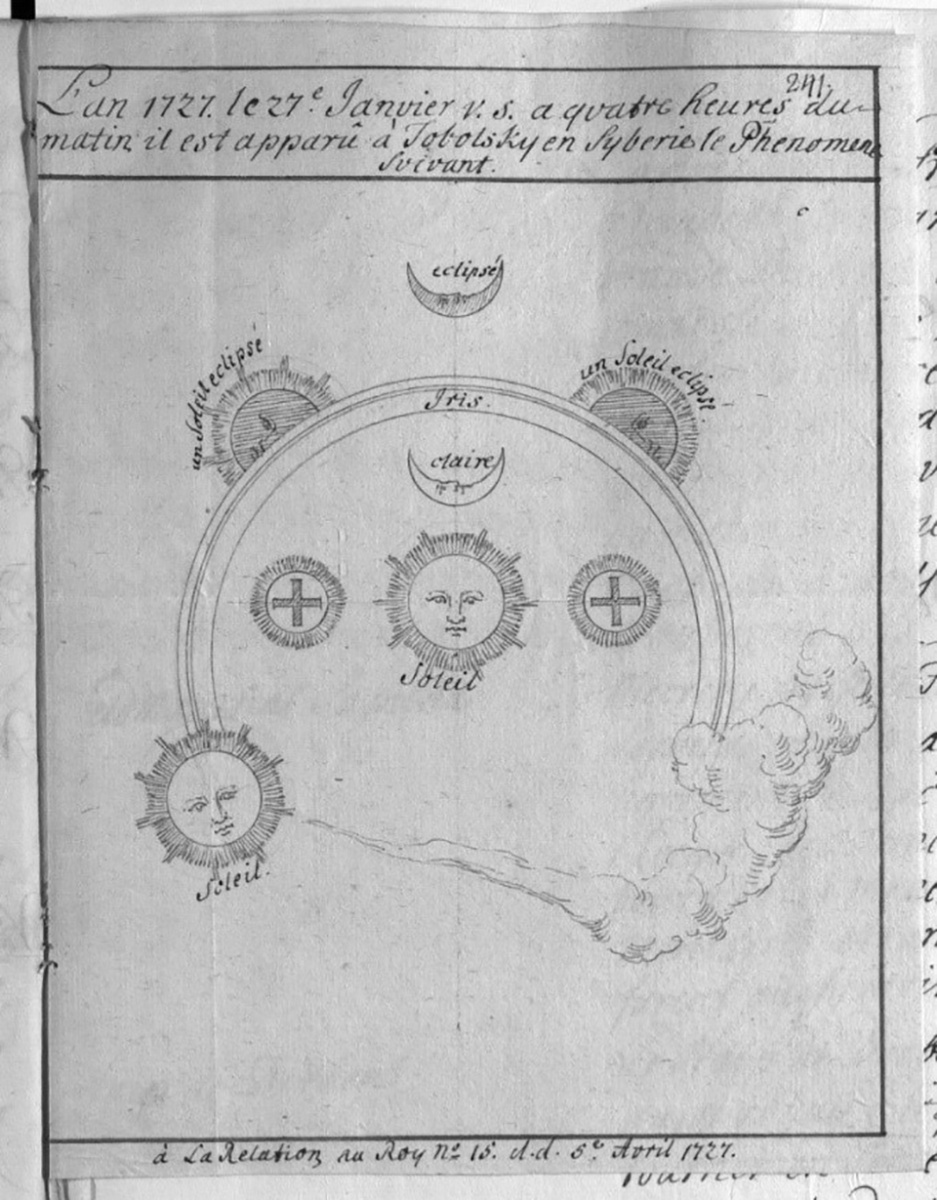 241.
L'an 1727. le 27.e Janvier v. s. a qvatre heures du
matin il est apparû à Tobolsky en Syberie le Phenomene
svivant.
eclipsé
un Soleil eclipsé
un Soleil eclipsé
Iris.
claire
Soleil
Soleil.
à La Relation au Roy No 15. d.d. 5.e Avril 1727.